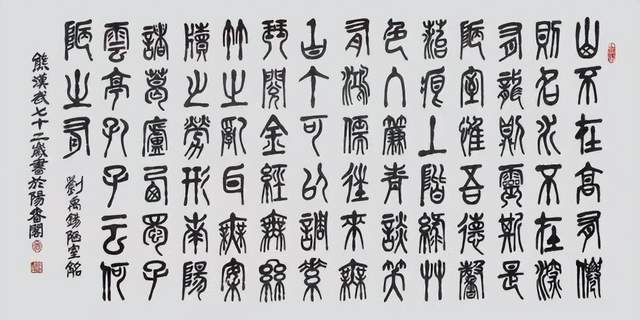 山不在高有僊
則名水不在深
有龍則靈斯是
陋室惟吾德馨
苔痕上階緑艸
色入簾青談笑
有鴻儒往來無
白丁可以調素
琴閱金經無絲
竹之亂耳無案
牘之勞形南陽
諸葛廬西蜀子
雲亭孔子云何
陋之有
劉禹錫陋室銘
熊漢武七十二歲書於陽閣